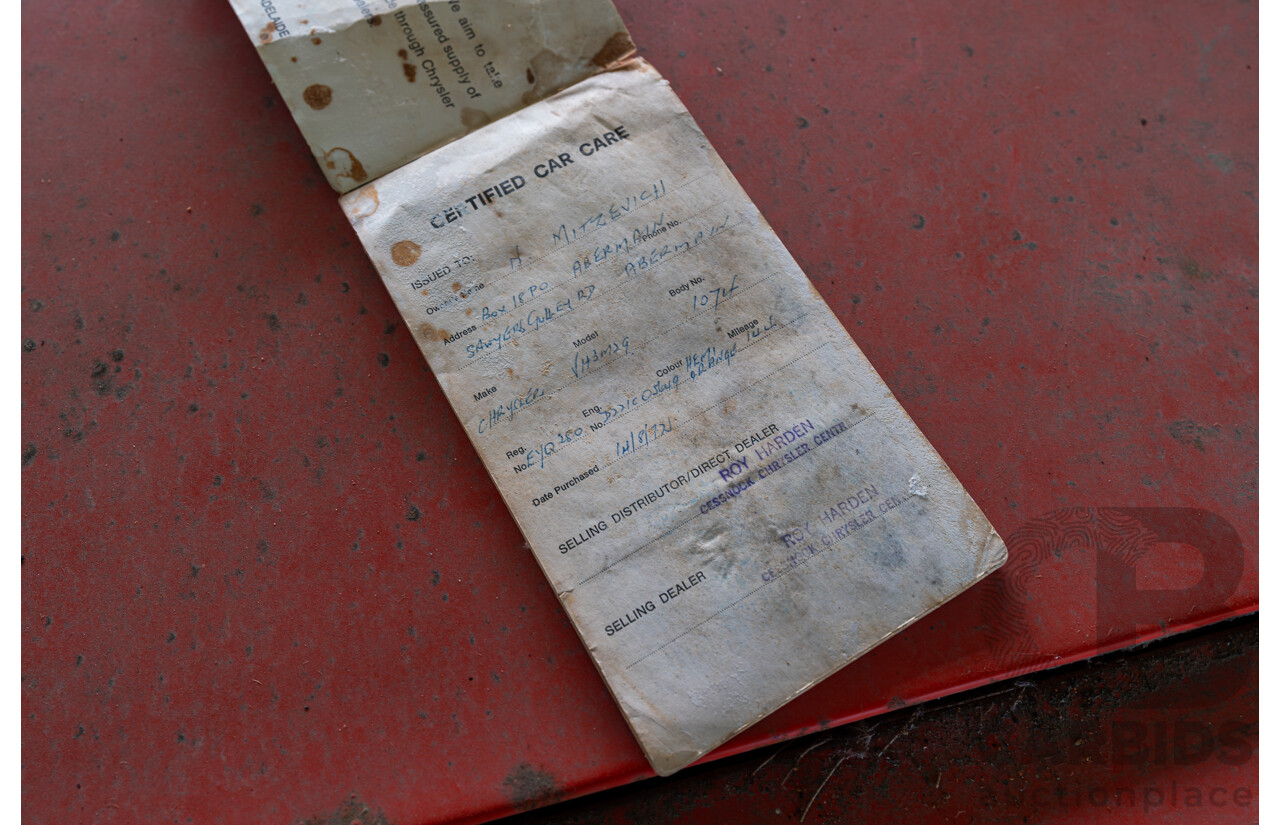 ADELAIDE
We aim to take
assured supply of
through Chrysler
CERTIFIED CAR CARE
ISSUED TO:
MITZEVICH
Owner's Name
Phone No.
Address
BOX 18 PO ABERMAIN
SAWYERS GULLEY RD ABERMAIN
Make
Model
Body No.
CHRYSLER
VH3M29
1074
Reg. No.
EYQ 280
Eng. No.
Colour
HEMI ORANGE
Mileage
Date Purchased
14/8/72
SELLING DISTRIBUTOR/DIRECT DEALER
ROY HARDEN
CESSNOCK CHRYSLER CENTR
SELLING DEALER
ROY HARDEN
CESSNOCK CHRYSLER CENT
BIDS
auctionplace